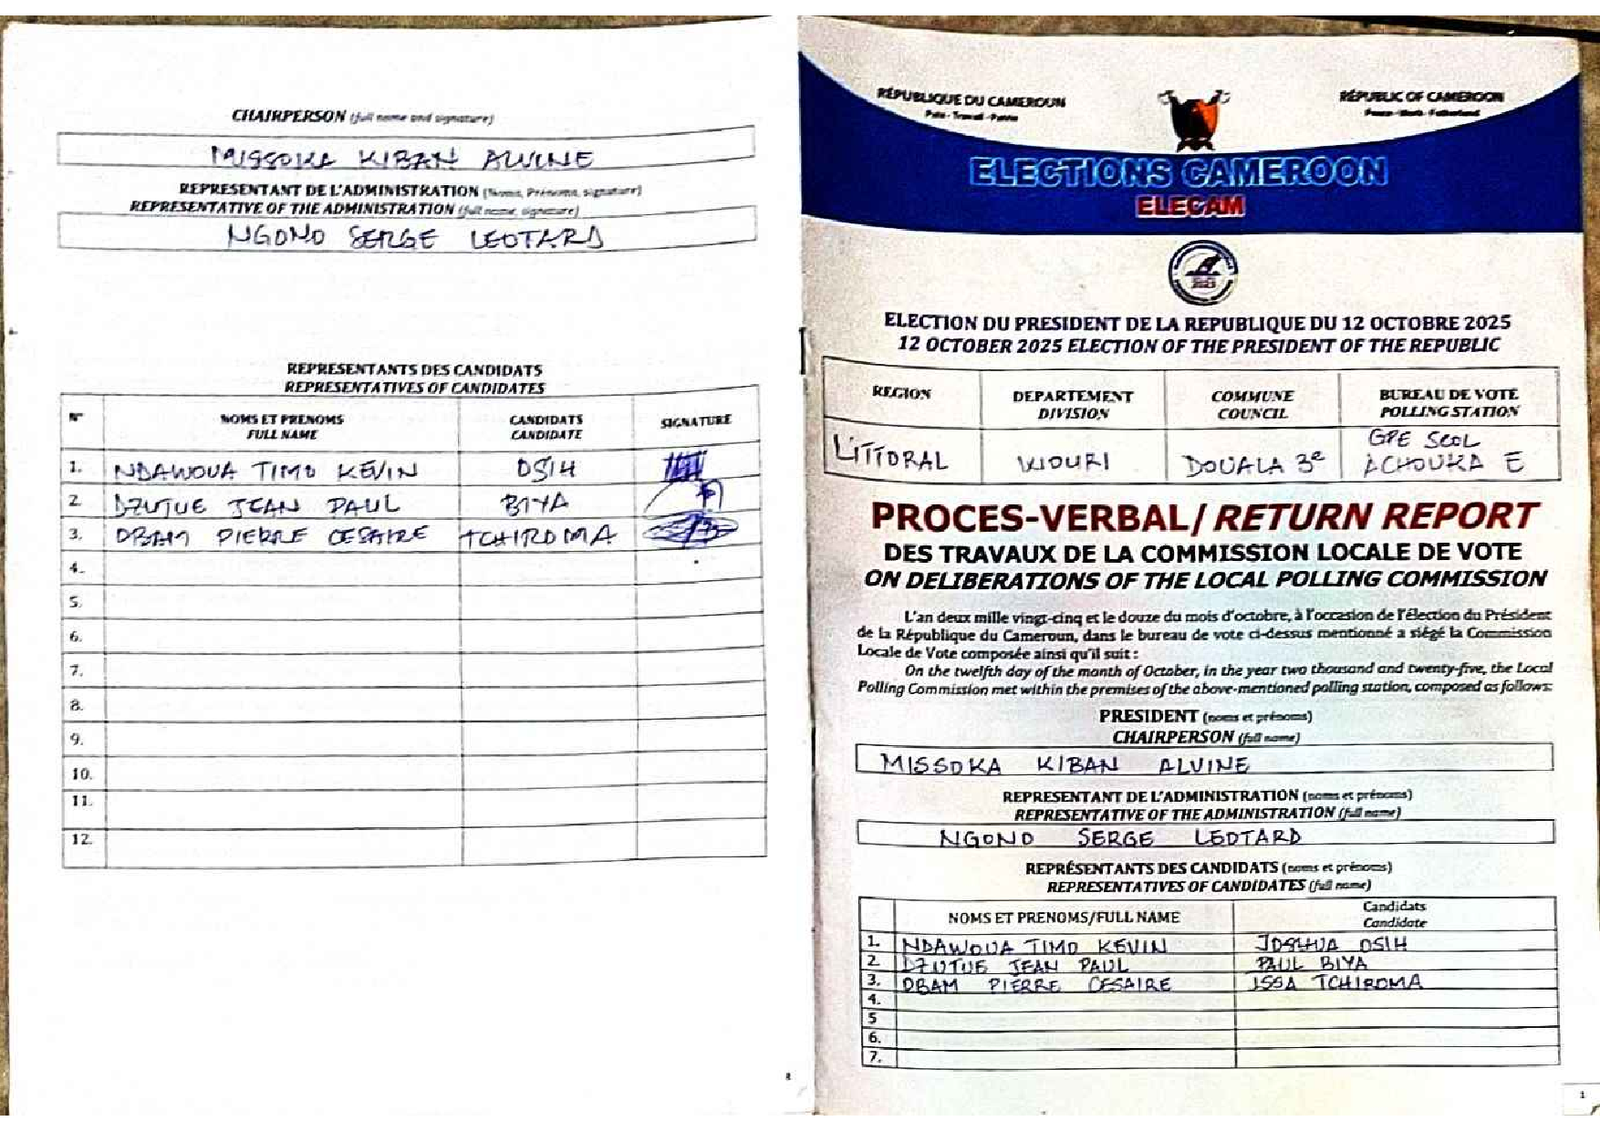 CHAIRPERSON (full name and signature)
MISSOKA KIBAN ALVINE
REPRESENTANT DE L'ADMINISTRATION (Noms, Prénoms, signature)
REPRESENTATIVE OF THE ADMINISTRATION (full name, signature)
NGONO SERGE LEOTARD
REPRESENTANTS DES CANDIDATS
REPRESENTATIVES OF CANDIDATES
N° NOMS ET PRENOMS CANDIDATS SIGNATURE
FULL NAME CANDIDATE
1. NDAWOUA TIMO KEVIN OSIH
2. DZUTUE JEAN PAUL BIYA
3. OBAM PIERRE CESAIRE TCHIROMA
4.
5.
6.
7.
8.
9.
10.
11.
12.
8
RÉPUBLIQUE DU CAMEROUN RÉPUBLIC OF CAMEROON
Paix - Travail - Patrie Peace - Work - Fatherland
ELECTIONS CAMEROON
ELECAM
ELECTION DU PRESIDENT DE LA REPUBLIQUE DU 12 OCTOBRE 2025
12 OCTOBER 2025 ELECTION OF THE PRESIDENT OF THE REPUBLIC
REGION DEPARTEMENT COMMUNE BUREAU DE VOTE
DIVISION COUNCIL POLLING STATION
LITTORAL WOURI DOUALA 3e GPE SCOL
ACHOUKA E
PROCES-VERBAL/ RETURN REPORT
DES TRAVAUX DE LA COMMISSION LOCALE DE VOTE
ON DELIBERATIONS OF THE LOCAL POLLING COMMISSION
L'an deux mille vingt-cinq et le douze du mois d'octobre, à l'occasion de l'élection du Président
de la République du Cameroun, dans le bureau de vote ci-dessus mentionné a siégé la Commission
Locale de Vote composée ainsi qu'il suit :
On the twelfth day of the month of October, in the year two thousand and twenty-five, the Local
Polling Commission met within the premises of the above-mentioned polling station, composed as follows:
PRESIDENT (noms et prénoms)
CHAIRPERSON (full name)
MISSOKA KIBAN ALVINE
REPRESENTANT DE L'ADMINISTRATION (noms et prénoms)
REPRESENTATIVE OF THE ADMINISTRATION (full name)
NGONO SERGE LEOTARD
REPRÉSENTANTS DES CANDIDATS (noms et prénoms)
REPRESENTATIVES OF CANDIDATES (full name)
NOMS ET PRENOMS/FULL NAME Candidats
Candidate
1. NDAWOUA TIMO KEVIN JOSHUA OSIH
2. DZUTUE JEAN PAUL PAUL BIYA
3. OBAM PIERRE CESAIRE ISSA TCHIROMA
4.
5
6.
7.
1